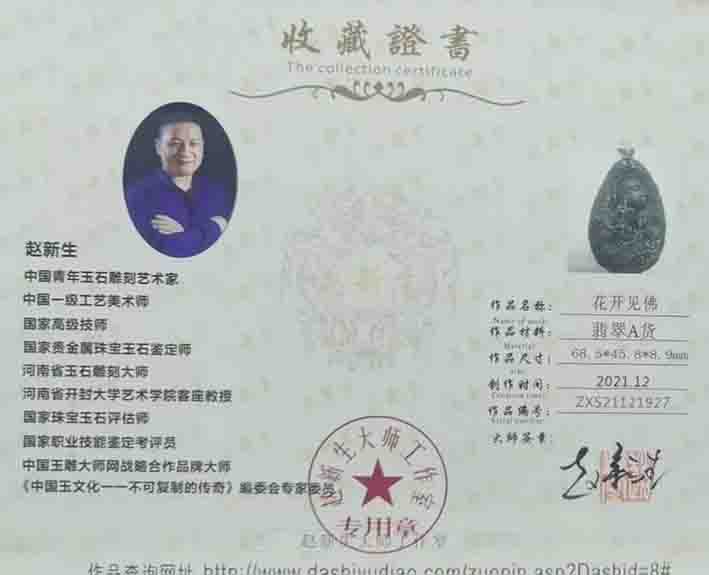 收藏證書
The collection certificate
赵新生
中国青年玉石雕刻艺术家
中国一级工艺美术师
国家高级技师
国家贵金属珠宝玉石鉴定师
河南省玉石雕刻大师
河南省开封大学艺术学院客座教授
国家珠宝玉石评估师
国家职业技能鉴定考评员
中国玉雕大师网战略合作品牌大师
《中国玉文化一一不可复制的传奇》编委会专家委员
作品名称： 花开见佛
Name of work:
作品材料： 翡翠A货
Material:
作品尺寸： 68.5*45.8*8.9mm
size:
创作时间： 2021.12
Creation time:
作品编号： ZXS21121927
Serial number:
大师签章：
赵新生
赵新生大师工作室
专用章
赵新生大师工作室
作品查询网址 http://www.dashiyudiao.com/zuopin.asp?Dashid=8#